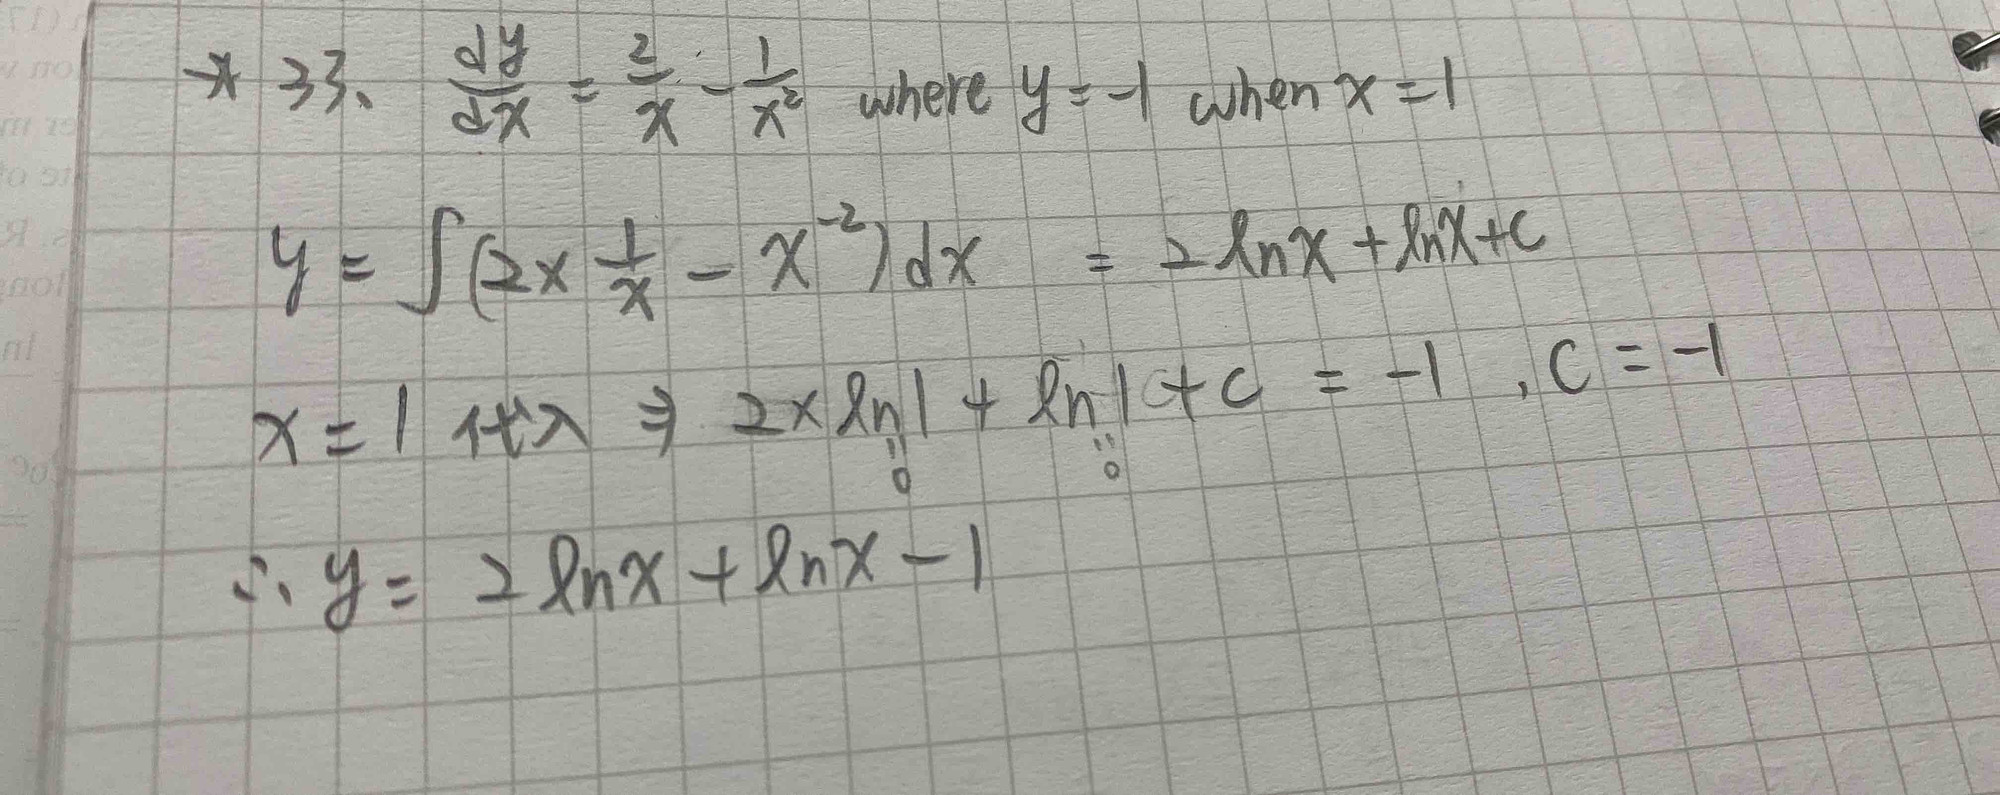 * 33. dy/dx = 2/x - 1/x² where y = -1 when x = 1
y = ∫(2× 1/x - x⁻²)dx = 2 lnx + lnx + c
x = 1 代入 ⇒ 2× ln1 + ln1 + c = -1 , c = -1
" 0 " 0
∴ y = 2 lnx + lnx - 1